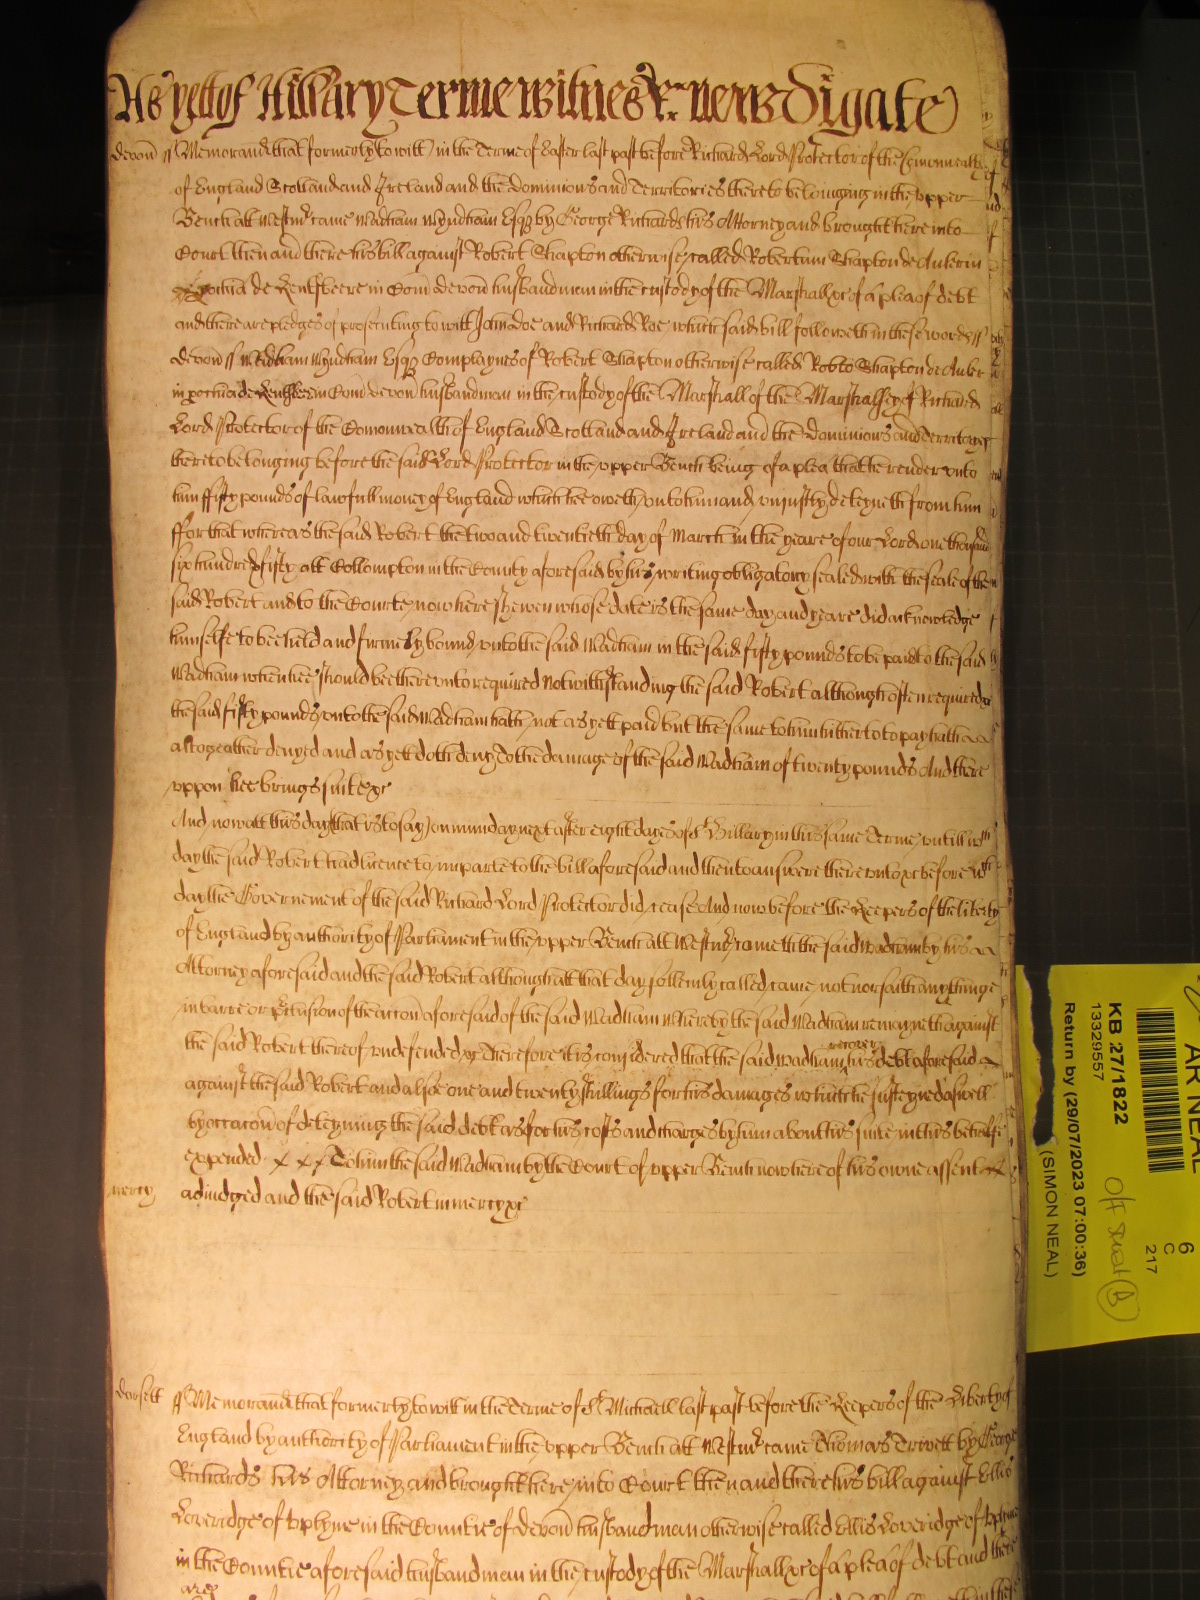 As yett of Hillary Terme witnes &c Newdigate
Devon ss Memorand that formerly to witt in the Terme of Easter last past before Richard Lord Protector of the Comonwealth
of England Scotland and Ireland and the Dominions and Territories thereto belonging in the upper
Bench att Westmr came Wadham Wyndham Esqr by George Richards his Attorney and brought here into
Court then and there his bill against Robert Shapton otherwise called Robertum Shapton de Anke in
pochia de Kentisbeere in Com Devon husbandman in the custody of the Marshall &c of a plea of debt
and there are pledges of prosecuting to witt John Doe and Richard Roe which said bill followeth in these words ss
Devon ss Wadham Wyndham Esqr Complaynes of Robert Shapton otherwise called Robto Shapton de Anke
in pochia de Kentisbeere in Com Devon husbandman in the custody of the Marshall of the Marshalsey of Richard
Lord Protector of the Comonwealth of England Scotland and Ireland and the Dominions and Territoryes
thereto belonging before the said Lord Protector in the upper Bench being of a plea that he render unto
him ffifty pounds of lawfull money of England which hee oweth unto him and uniustly deteyneth from him
ffor that whereas the said Robert the two and twentieth day of March in the yeare of our Lord one thousand
six hundred fifty att Collompton in the County aforesaid by his writing obligatory sealed with the seale of the
said Robert and to the Courte now here shewen whose date is the same day and yeare did acknowledge
himselfe to bee held and firmely bound unto the said Wadham in the said fifty pounds to be paid to the said
Wadham when hee should bee thereunto required Notwithstanding the said Robert although often required &c
the said fifty pounds unto the said Wadham hath not as yett paid but the same to him hitherto to pay hath
altogeather denyed and as yett doth deny To the damage of the said Wadham of twenty pounds And there
uppon hee brings suite &c
And now att this day that is to say on munday next after eight dayes of St Hillary in this same Terme untill wch
day the said Robert had licence to imparle to the bill aforesaid and then to answere thereunto &c before wch
day the Governement of the said Richard Lord Protector did cease And now before the Keepers of the liberty
of England by authority of Parliament in the upper Bench att Westmr came the the said Wadham by his
Attorney aforesaid and the said Robert although att that day sollemly called came not nor saith any thinge
in barre or preclusion of the accon aforesaid of the said Wadham Whereby the said Wadham remayneth against
the said Robert thereof undefended &c Therefore it is considered that the said Wadham recover his debt aforesaid
against the said Robert and alsoe one and twenty shillings for his damages which he susteyned aswell
by occacon of deteyning the said debt as for his costs and charges by him about his suite in this behalfe
expended x x x To him the said Wadham by the Court of upper Bench now here of his owne assent
mercy adiudged and the said Robert in mercy &c
Dorsett ss Memorand that formerly to witt in the Terme of St Michaell last past before the Keepers of the Liberty of
England by authority of Parliament in the upper Bench att Westmr came Thomas Trivett by George
Richards his Attorney and brought here into Court then and there his bill against Ellis
Loveridge of Uplyme in the Countie of Devon husbandman otherwise called Ellis Loveridge of Uplyme
in the Countie aforesaid husbandman in the custody of the Marshall &c of a plea of debt and there
are
AR NEAL
KB 27/1822
13329557
Return by (29/07/2023 07:00:36)
(SIMON NEAL)
6
C
217